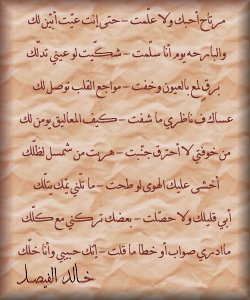 مرتاح أحبك ولا علّمت - حتى إنت عيّت أبيّن لك
والبارحه يوم أنا سلّمت - شكّيت لو عيني تدلّك
برقٍ لمع بالعيون وخفت - مواجع القلب توصل لك
عساك ف ناظري ما شفت - كيف المعاليق يومن لك
من خوفتي لا أحترق جنّبت - هربت من شمسل لظلّك
أخشى عليك الهوى لو طحت - ما تلّني يمّك يتلّك
أبي قليلك ولا حصّلت - بعضك تركني مع كلّك
ما ادري صواب أو خطا ما قلت - إنّك حبيبي وأنا خلّك
خالد الفيصل